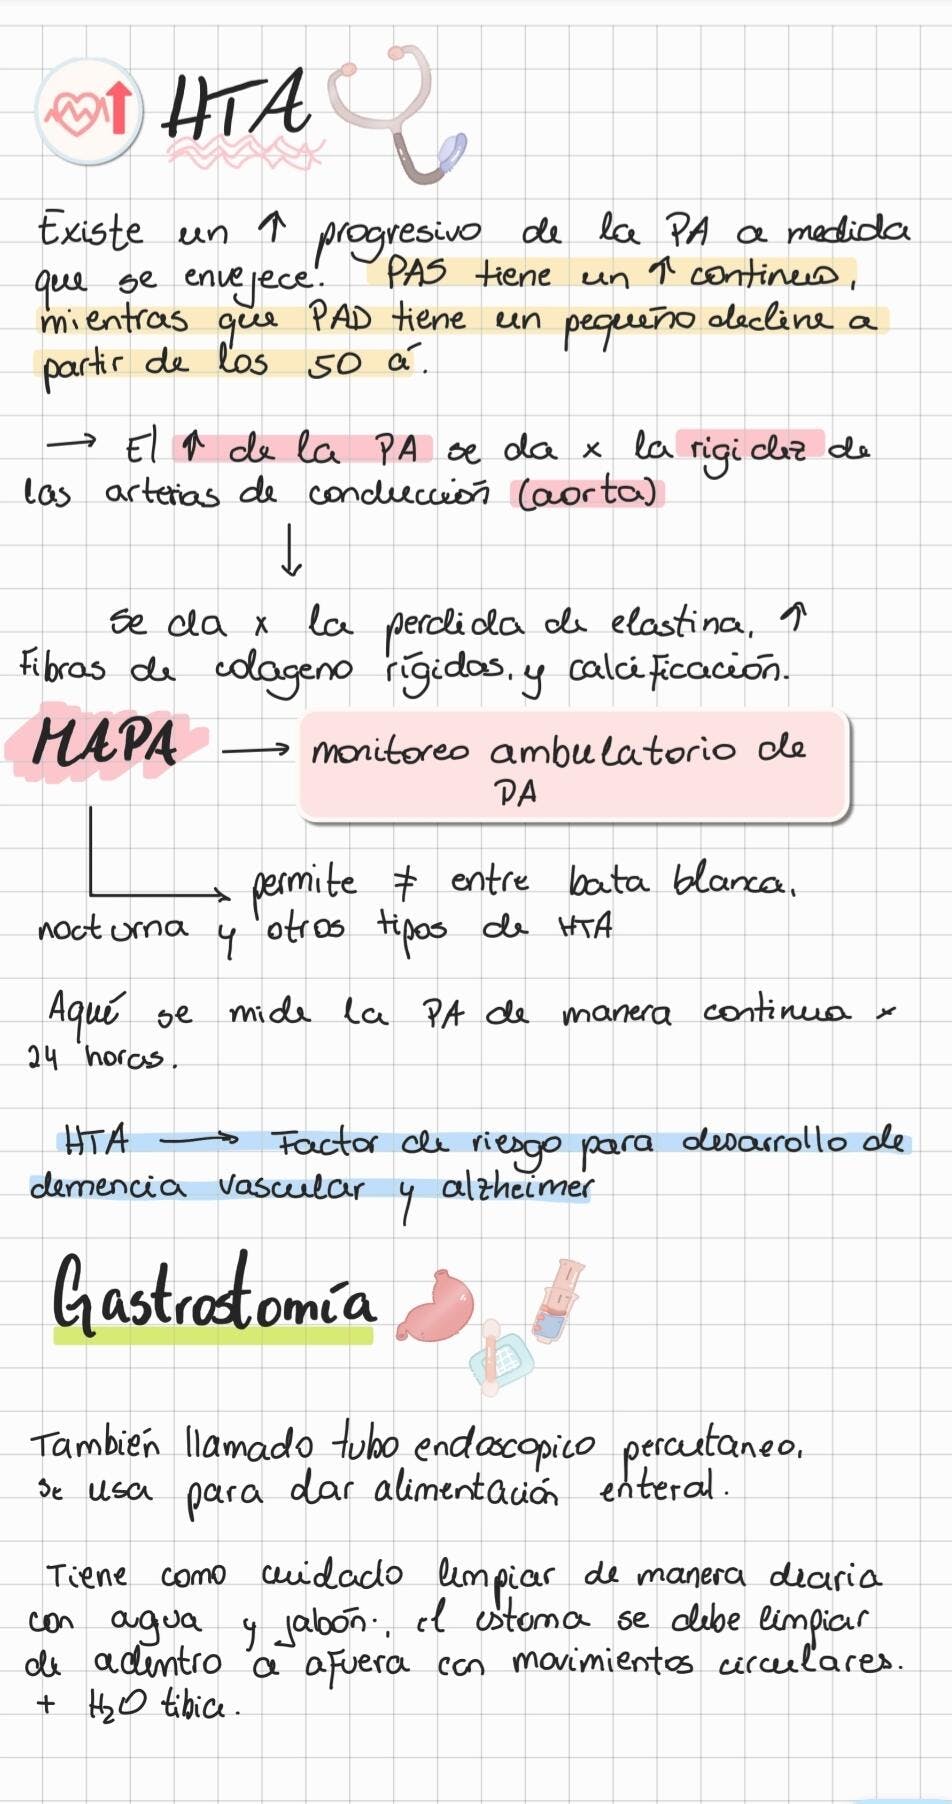 HTA
Existe un ↑ progresivo de la PA a medida
que se envejece. PAS tiene un ↑ continuo,
mientras que PAD tiene un pequeño decline a
partir de los 50 á.
→ El ↑ de la PA se da x la rigidez de
las arterias de conducción (aorta)
↓
se da x la perdida de elastina, ↑
Fibras de colageno rígidas, y calcificación.
MAPA → monitoreo ambulatorio de
PA
permite ≠ entre bata blanca,
nocturna y otros tipos de HTA
Aqué se mide la PA de manera continua x
24 horas.
HTA → Factor de riesgo para desarrollo de
demencia vascular y alzheimer
Gastrostomía
También llamado tubo endoscopico percutaneo,
se usa para dar alimentación enteral.
Tiene como cuidado limpiar de manera diaria
con agua y jabón; el estoma se debe limpiar
de adentro a afuera con movimientos circulares.
+ H₂O tibia.